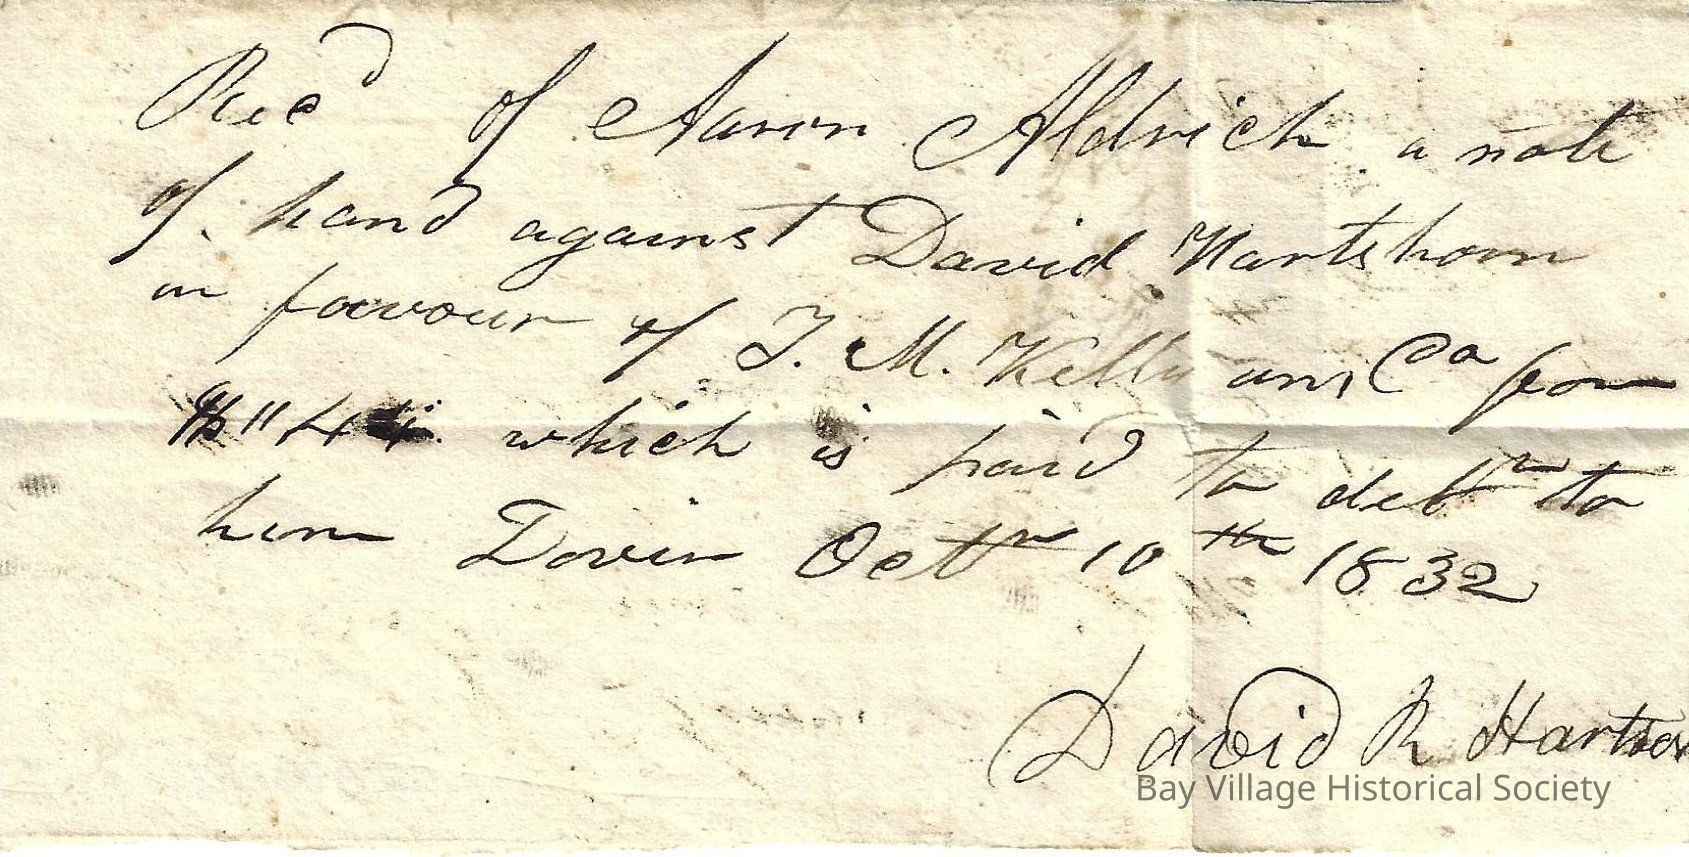 Rec^d of Aaron Aldrich a note
of hand against David Hartshorn
in favour of T. M. Kelly and Co for
which is paid to deb^n to
him Dover Oct^r 10^th 1832
David R Hartsho
Bay Village Historical Society